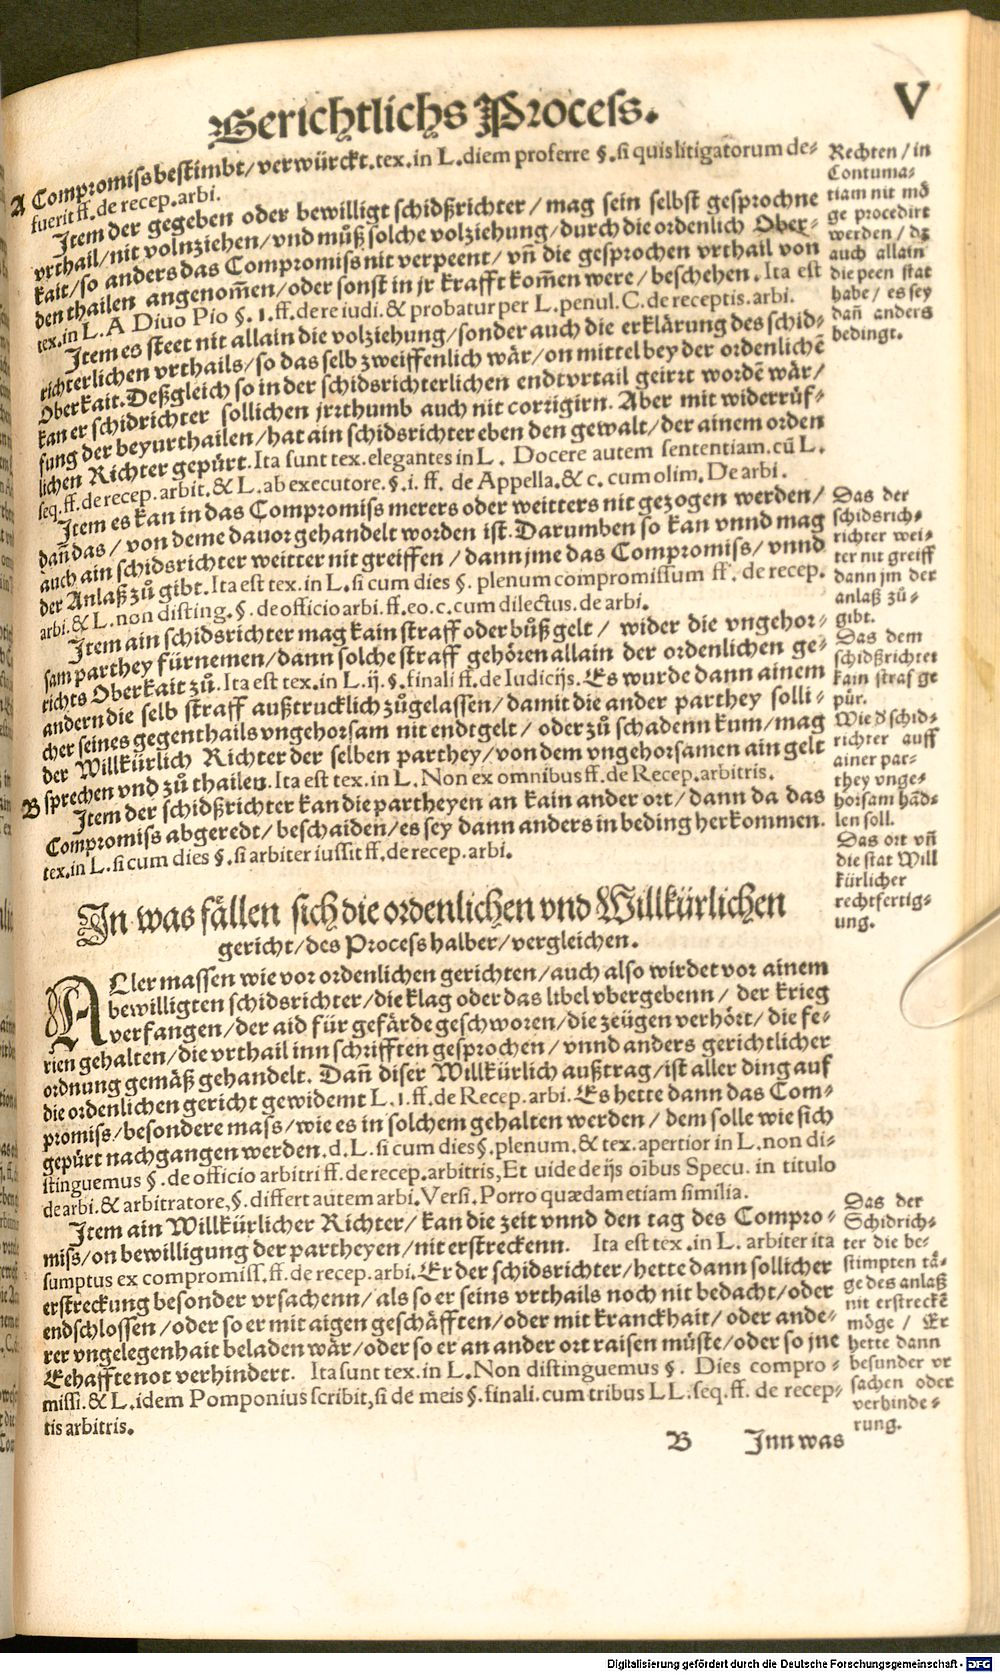 Gerichtlichs Process.
V
A Compromiss bestimbt/verwürckt.tex.in L.diem proferre §.si quis litigatorum de-
fuerit ff.de recep.arbi.
Item der gegeben oder bewilligt schidßrichter/mag sein selbst gesprochne
vrthail/nit volnziehen/vnd můß solche volziehung/durch die ordenlich Ober-
kait/so anders das Compromiss nit verpeent/vñ die gesprochen vrthail von
den thailen angenom̃en/oder sonst in jr krafft kom̃en were/beschehen. Ita est
tex.in L.A Diuo Pio §.1.ff.de re iudi.& probatur per L.penul.C.de receptis.arbi.
Item es steet nit allain die volziehung/sonder auch die erklärung des schid-
richterlichen vrthails/so das selb zweiffenlich wär/on mittel bey der ordenlichẽ
Oberkait. Deßgleich so in der schidsrichterlichen endtvrtail geirrt wordẽ wär/
kan er schidrichter sollichen jrrthumb auch nit corrigirn. Aber mit widerrůf-
fung der beyurthailen/hat ain schidsrichter eben den gewalt/der ainem orden
lichen Richter gepürt. Ita sunt tex.elegantes in L. Docere autem sententiam.cũ L.
seq.ff.de recep.arbit.& L.ab executore.§.i.ff. de Appella.& c.cum olim. De arbi.
Item es kan in das Compromiss merers oder weitters nit gezogen werden/
dañ das/von deme dauor gehandelt worden ist. Darumben so kan vnnd mag
auch ain schidsrichter weitter nit greiffen/dann jme das Compromiss/vnnd
der Anlaß zů gibt. Ita est tex.in L.si cum dies §. plenum compromissum ff. de recep.
arbi.& L.non disting.§.de officio arbi.ff.eo.c.cum dilectus.de arbi.
Item ain schidsrichter mag kain straff oder bůß gelt/ wider die vngehor-
sam parthey fürnemen/dann solche straff gehören allain der ordenlichen ge-
richts Oberkait zů. Ita est tex.in L.ij.§.finali ff.de Iudicijs. Es wurde dann ainem
andern die selb straff außtrucklich zůgelassen/damit die ander parthey solli-
cher seines gegenthails vngehorsam nit endtgelt/ oder zů schadenn kum/mag
der Willkürlich Richter der selben parthey/von dem vngehorsamen ain gelt
B sprechen vnd zů thailen. Ita est tex.in L. Non ex omnibus ff.de Recep.arbitris.
Item der schidßrichter kan die partheyen an kain ander ort/dann da das
Compromiss abgeredt/beschaiden/es sey dann anders in beding herkommen.
tex.in L.si cum dies §.si arbiter iussit ff.de recep.arbi.
In was fällen sich die ordenlichen vnd Willkürlichen
gericht/des Process halber/vergleichen.
ALler massen wie vor ordenlichen gerichten/auch also wirdet vor ainem
bewilligten schidsrichter/die klag oder das libel vbergebenn/ der krieg
verfangen/der aid für gefärde geschworen/die zeügen verhört/die fe-
rien gehalten/die vrthail inn schrifften gesprochen/vnnd anders gerichtlicher
ordnung gemäß gehandelt. Dañ diser Willkürlich außtrag/ist aller ding auf
die ordenlichen gericht gewidemt L.1.ff.de Recep.arbi. Es hette dann das Com-
promiss/besondere mass/wie es in solchem gehalten werden/dem solle wie sich
gepürt nachgangen werden. d.L.si cum dies §.plenum.& tex.apertior in L.non di-
stinguemus §.de officio arbitri ff.de recep.arbitris, Et uide de ijs oibus Specu. in titulo
de arbi.& arbitratore,§.differt autem arbi. Versi. Porro quædam etiam similia.
Item ain Willkürlicher Richter/kan die zeit vnnd den tag des Compro-
miss/on bewilligung der partheyen/nit erstreckenn. Ita est tex.in L. arbiter ita
sumptus ex compromiss.ff.de recep.arbi. Er der schidsrichter/hette dann sollicher
erstreckung besonder vrsachenn/als so er seins vrthails noch nit bedacht/oder
endschlossen/oder so er mit aigen geschäfften/oder mit kranckhait/oder ande-
rer vngelegenhait beladen wär/oder so er an ander ort raisen müste/oder so jne
Eehaffte not verhindert. Ita sunt tex.in L.Non distinguemus §. Dies compro-
missi.& L.idem Pomponius scribit,si de meis §.finali.cum tribus LL.seq.ff. de recep-
tis arbitris.
B Inn was
Rechten/in
Contuma-
tiam nit mö
ge procedirt
werden/dz
auch allain
die peen stat
habe/es sey
dañ anders
bedingt.
Das der
schidsrich-
richter wei-
ter nit greiff
dann jm der
anlaß zů-
gibt.
Das dem
schidßrichter
kain straf ge
pür.
Wie d' schid-
richter auff
ainer par-
they vnge-
horsam hãd-
len soll.
Das ort vñ
die stat Will
kürlicher
rechtfertig-
ung.
Das der
Schidrich-
ter die be-
stimpten tä-
ge des anlaß
nit erstreckẽ
möge/ Er
hette dann
besunder vr
sachen oder
verhinde-
rung.
Digitalisierung gefördert durch die Deutsche Forschungsgemeinschaft - DFG